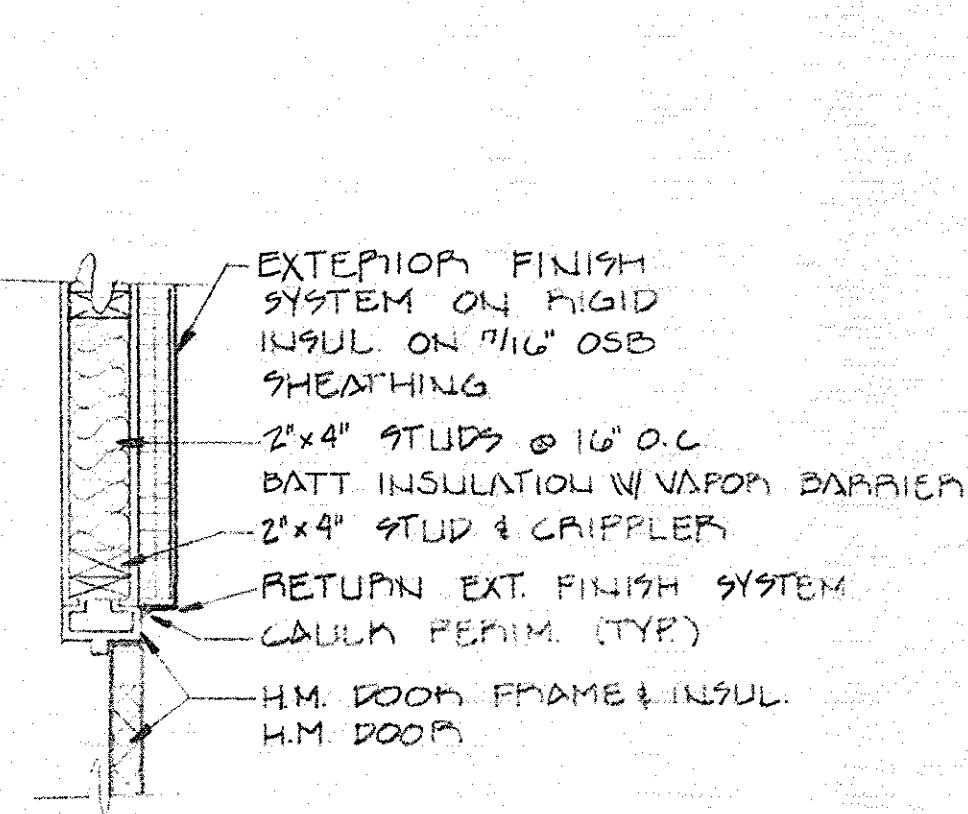 EXTERIOR FINISH
SYSTEM ON RIGID
INSUL. ON 7/16" OSB
SHEATHING
2"x4" STUDS @ 16" O.C.
BATT INSULATION W/ VAPOR BARRIER
2"x4" STUD & CRIPPLER
RETURN EXT. FINISH SYSTEM
CAULK PERIM. (TYP.)
H.M. DOOR FRAME & INSUL.
H.M. DOOR